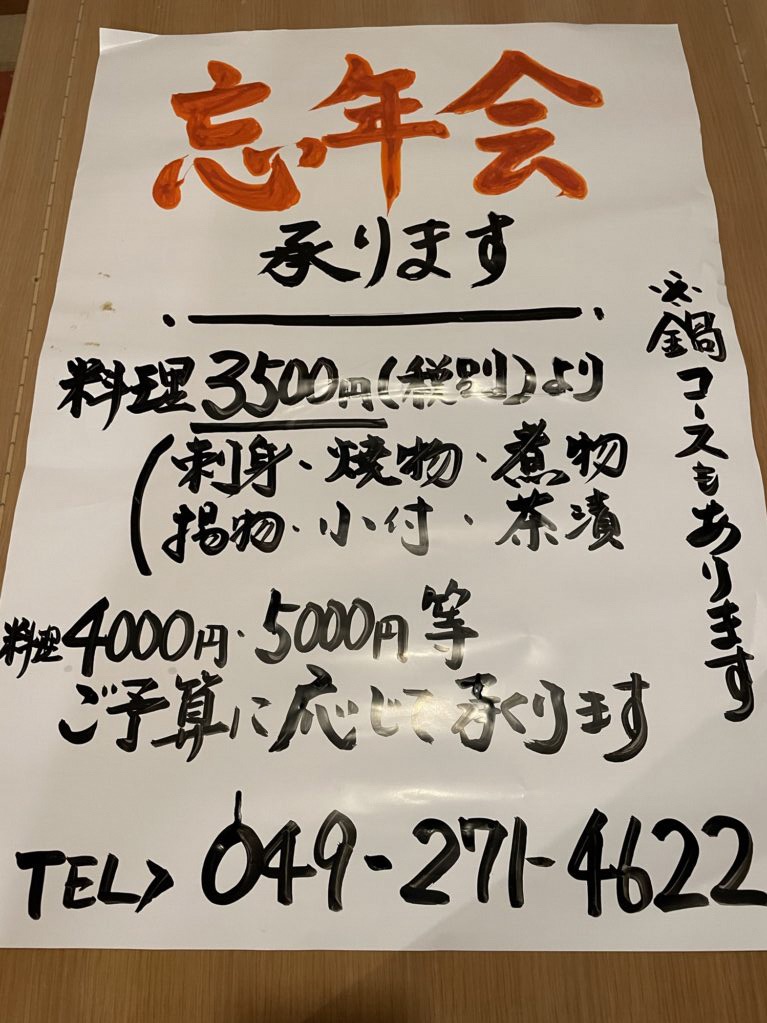 忘年会
承ります
料理3500円(税別)より
(刺身・焼物・煮物
揚物・小付・茶漬
料理4000円・5000円等
ご予算に応じて承ります
TEL> 049-271-4622
※鍋コースもあります